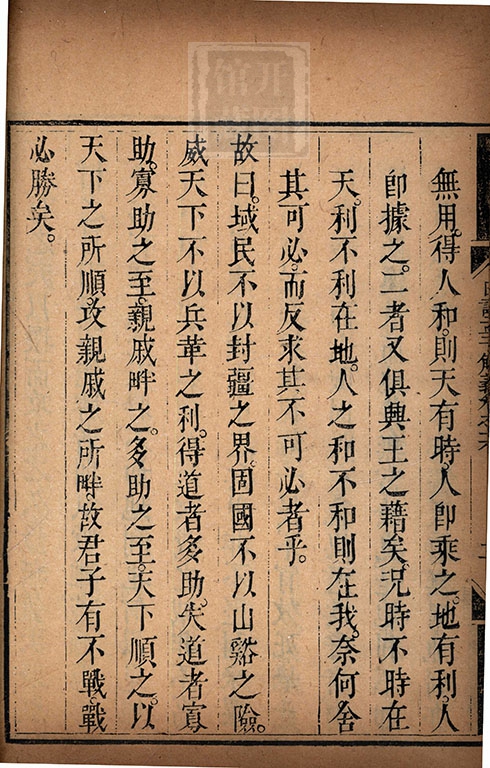 無用。得人和。則天有時。人卽乘之。地有利。人
卽據之。二者又俱興王之藉矣。况時不時在
天。利不利在地。人之和不和則在我。奈何舍
其可必。而反求其不可必者乎。
故曰。域民不以封疆之界。固國不以山谿之險。
威天下不以兵革之利。得道者多助。失道者寡
助。寡助之至。親戚畔之。多助之至。天下順之。以
天下之所順。攻親戚之所畔。故君子有不戰。戰
必勝矣。